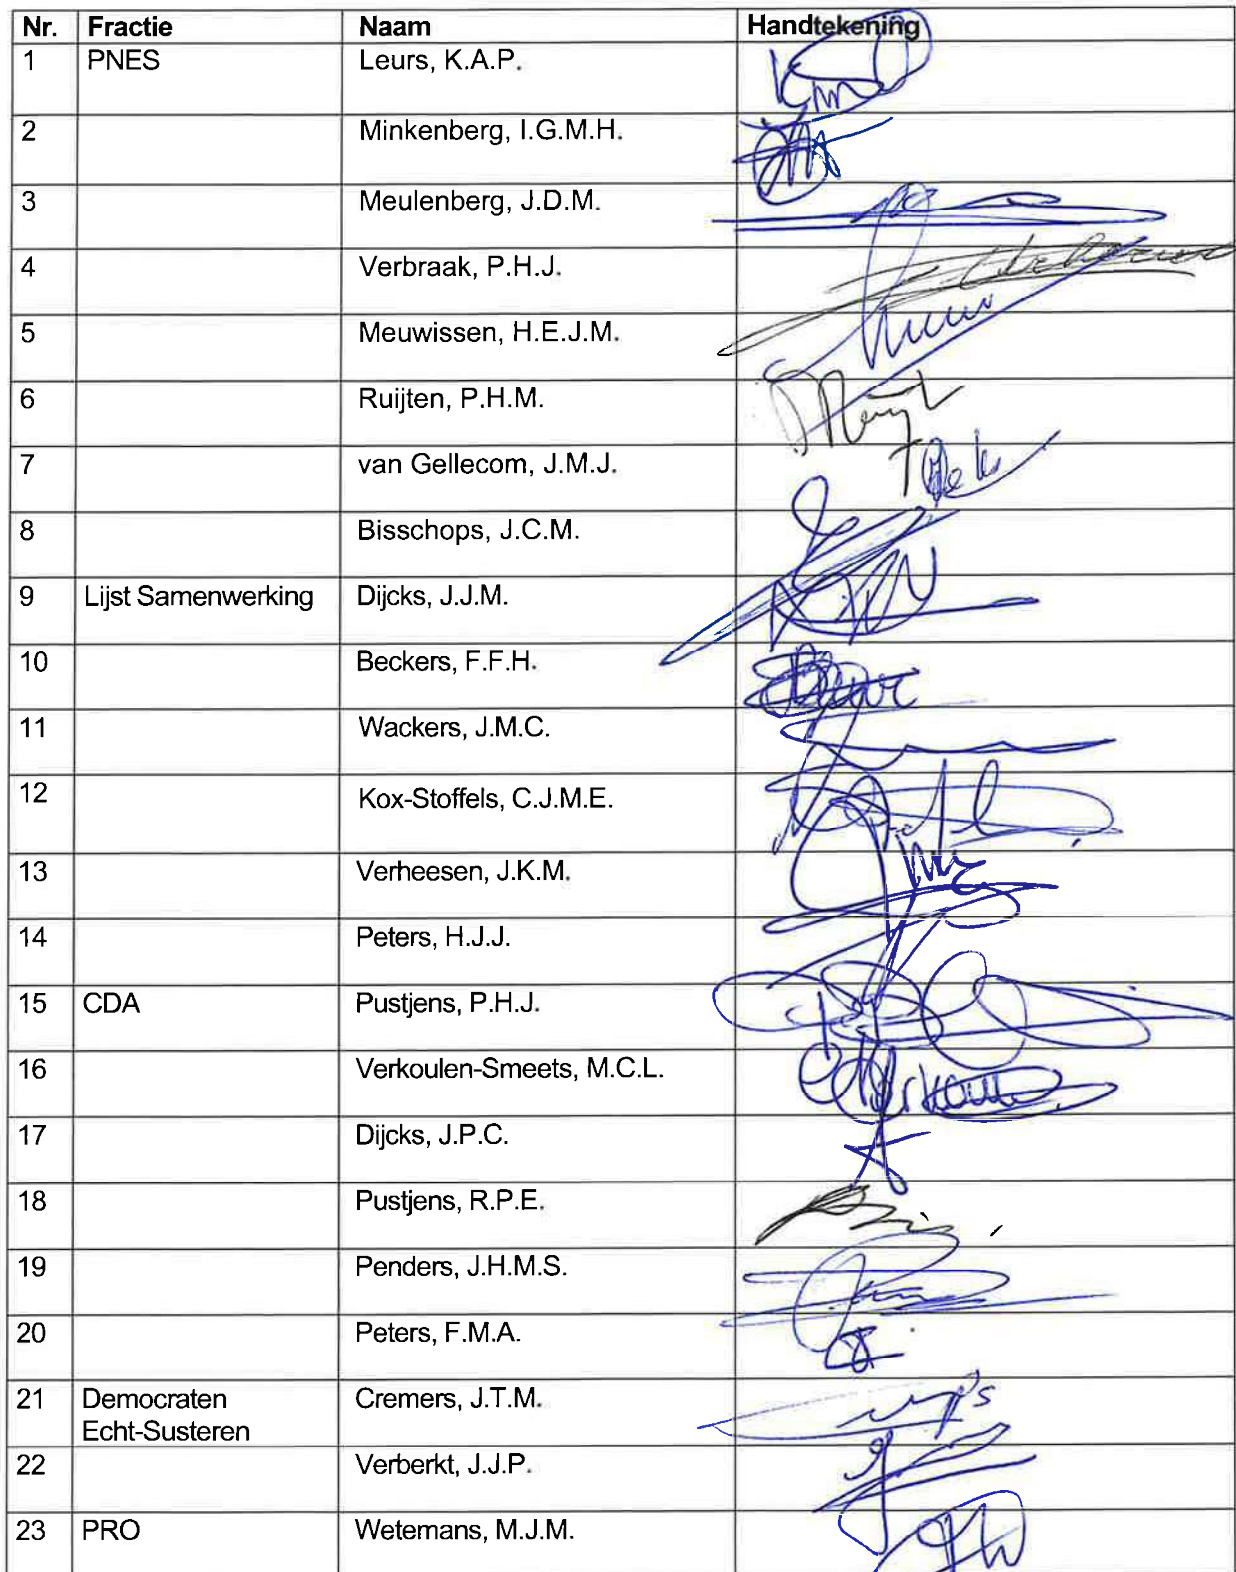 Nr. Fractie Naam Handtekening
1 PNES Leurs, K.A.P.
2 Minkenberg, I.G.M.H.
3 Meulenberg, J.D.M.
4 Verbraak, P.H.J.
5 Meuwissen, H.E.J.M.
6 Ruijten, P.H.M.
7 van Gellecom, J.M.J.
8 Bisschops, J.C.M.
9 Lijst Samenwerking Dijcks, J.J.M.
10 Beckers, F.F.H.
11 Wackers, J.M.C.
12 Kox-Stoffels, C.J.M.E.
13 Verheesen, J.K.M.
14 Peters, H.J.J.
15 CDA Pustjens, P.H.J.
16 Verkoulen-Smeets, M.C.L.
17 Dijcks, J.P.C.
18 Pustjens, R.P.E.
19 Penders, J.H.M.S.
20 Peters, F.M.A.
21 Democraten Cremers, J.T.M.
Echt-Susteren
22 Verberkt, J.J.P.
23 PRO Wetemans, M.J.M.